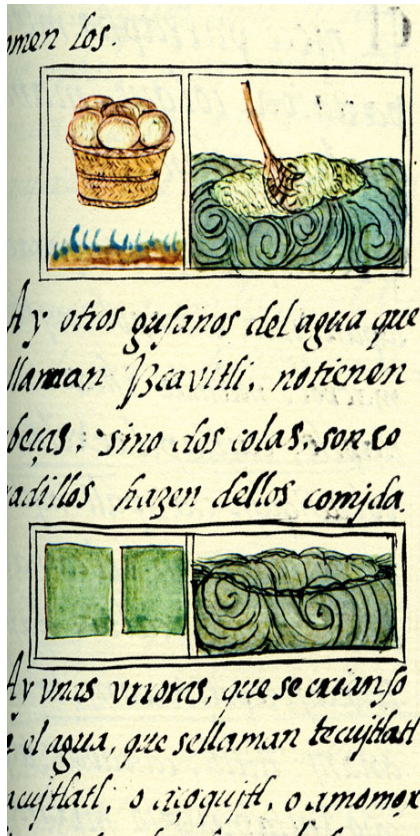 omen los.
Ay otros gusanos del agua que
llaman Yzcavitli, notienen
beças, sino dos colas, son co
radillos hazen dellos comida.
Ay vnas vrronas, que se crian so
el agua, que sellaman tecujtlatl
acujtlatl, o açoqujtl, o amomox